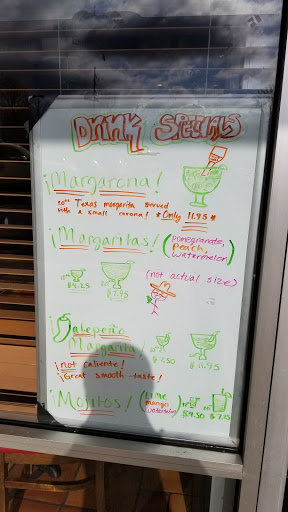 DRINK SPECIALS
¡Margarona!
20oz Texas margarita served
with a small corona! *Only 11.95*
¡Margaritas! (pomegranate,
peach,
watermelon)
(not actual size)
$8.25
$12.95
¡Jalepeño
Margarita!
¡not caliente!
¡Great smooth taste!
$11.25
¡Mojitos! (lime
mango
watermelon)
$4.50 $7.75